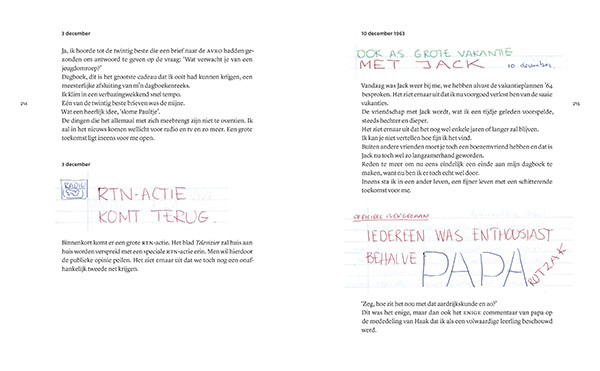 3 december
Ja, ik hoorde tot de twintig beste die een brief naar de AVRO hadden ge-
zonden om antwoord te geven op de vraag: 'Wat verwacht je van een
jeugdomroep?'
Dagboek, dit is het grootste cadeau dat ik ooit had kunnen krijgen, een
meesterlijke afsluiting van m'n dagboekenreeks.
Ik klim in een verbazingwekkend snel tempo.
Eén van de twintig beste brieven was de mijne.
Wat een heerlijk idee, 'slome Paultje'.
De dingen die het allemaal met zich meebrengt zijn niet te overzien. Ik
zal in het nieuws komen wellicht voor radio en tv en zo meer. Een grote
toekomst ligt ineens voor me open.
214
3 december
RADIO
RTN-ACTIE
KOMT TERUG.
Binnenkort komt er een grote RTN-actie. Het blad Televizier zal huis aan
huis worden verspreid met een speciale RTN-actie erin. Men wil hierdoor
de publieke opinie peilen. Het ziet ernaar uit dat we toch nog een onaf-
hankelijk tweede net krijgen.
10 december 1963
OOK AS. GROTE VAKANTIE
MET JACK 10 december.
Vandaag was Jack weer bij me, we hebben alvast de vakantieplannen '64
besproken. Het ziet ernaar uit dat ik nu voorgoed verlost ben van de saaie
vakanties.
De vriendschap met Jack wordt, wat ik een tijdje geleden voorspelde,
steeds hechter en dieper.
Het ziet ernaar uit dat het nog wel enkele jaren of langer zal blijven.
Ik kan je niet vertellen hoe fijn ik het vind.
Buiten andere vrienden moet je toch een boezemvriend hebben en dat is
Jack nu toch wel zo langzamerhand geworden.
Reden te meer om nu eens eindelijk een einde aan mijn dagboek te
maken, want nu ben ik er toch echt wel door.
Ineens sta ik in een ander leven, een fijner leven met een schitterende
toekomst voor me.
215
IEDEREEN WAS ENTHOUSIAST
BEHALVE PAPA
ROTZAK
'Zeg, hoe zit het nou met dat aardrijkskunde en zo?'
Dit was het enige, maar dan ook het ENIGE commentaar van papa op
de mededeling van Haak dat ik als een volwaardige leerling beschouwd
werd.